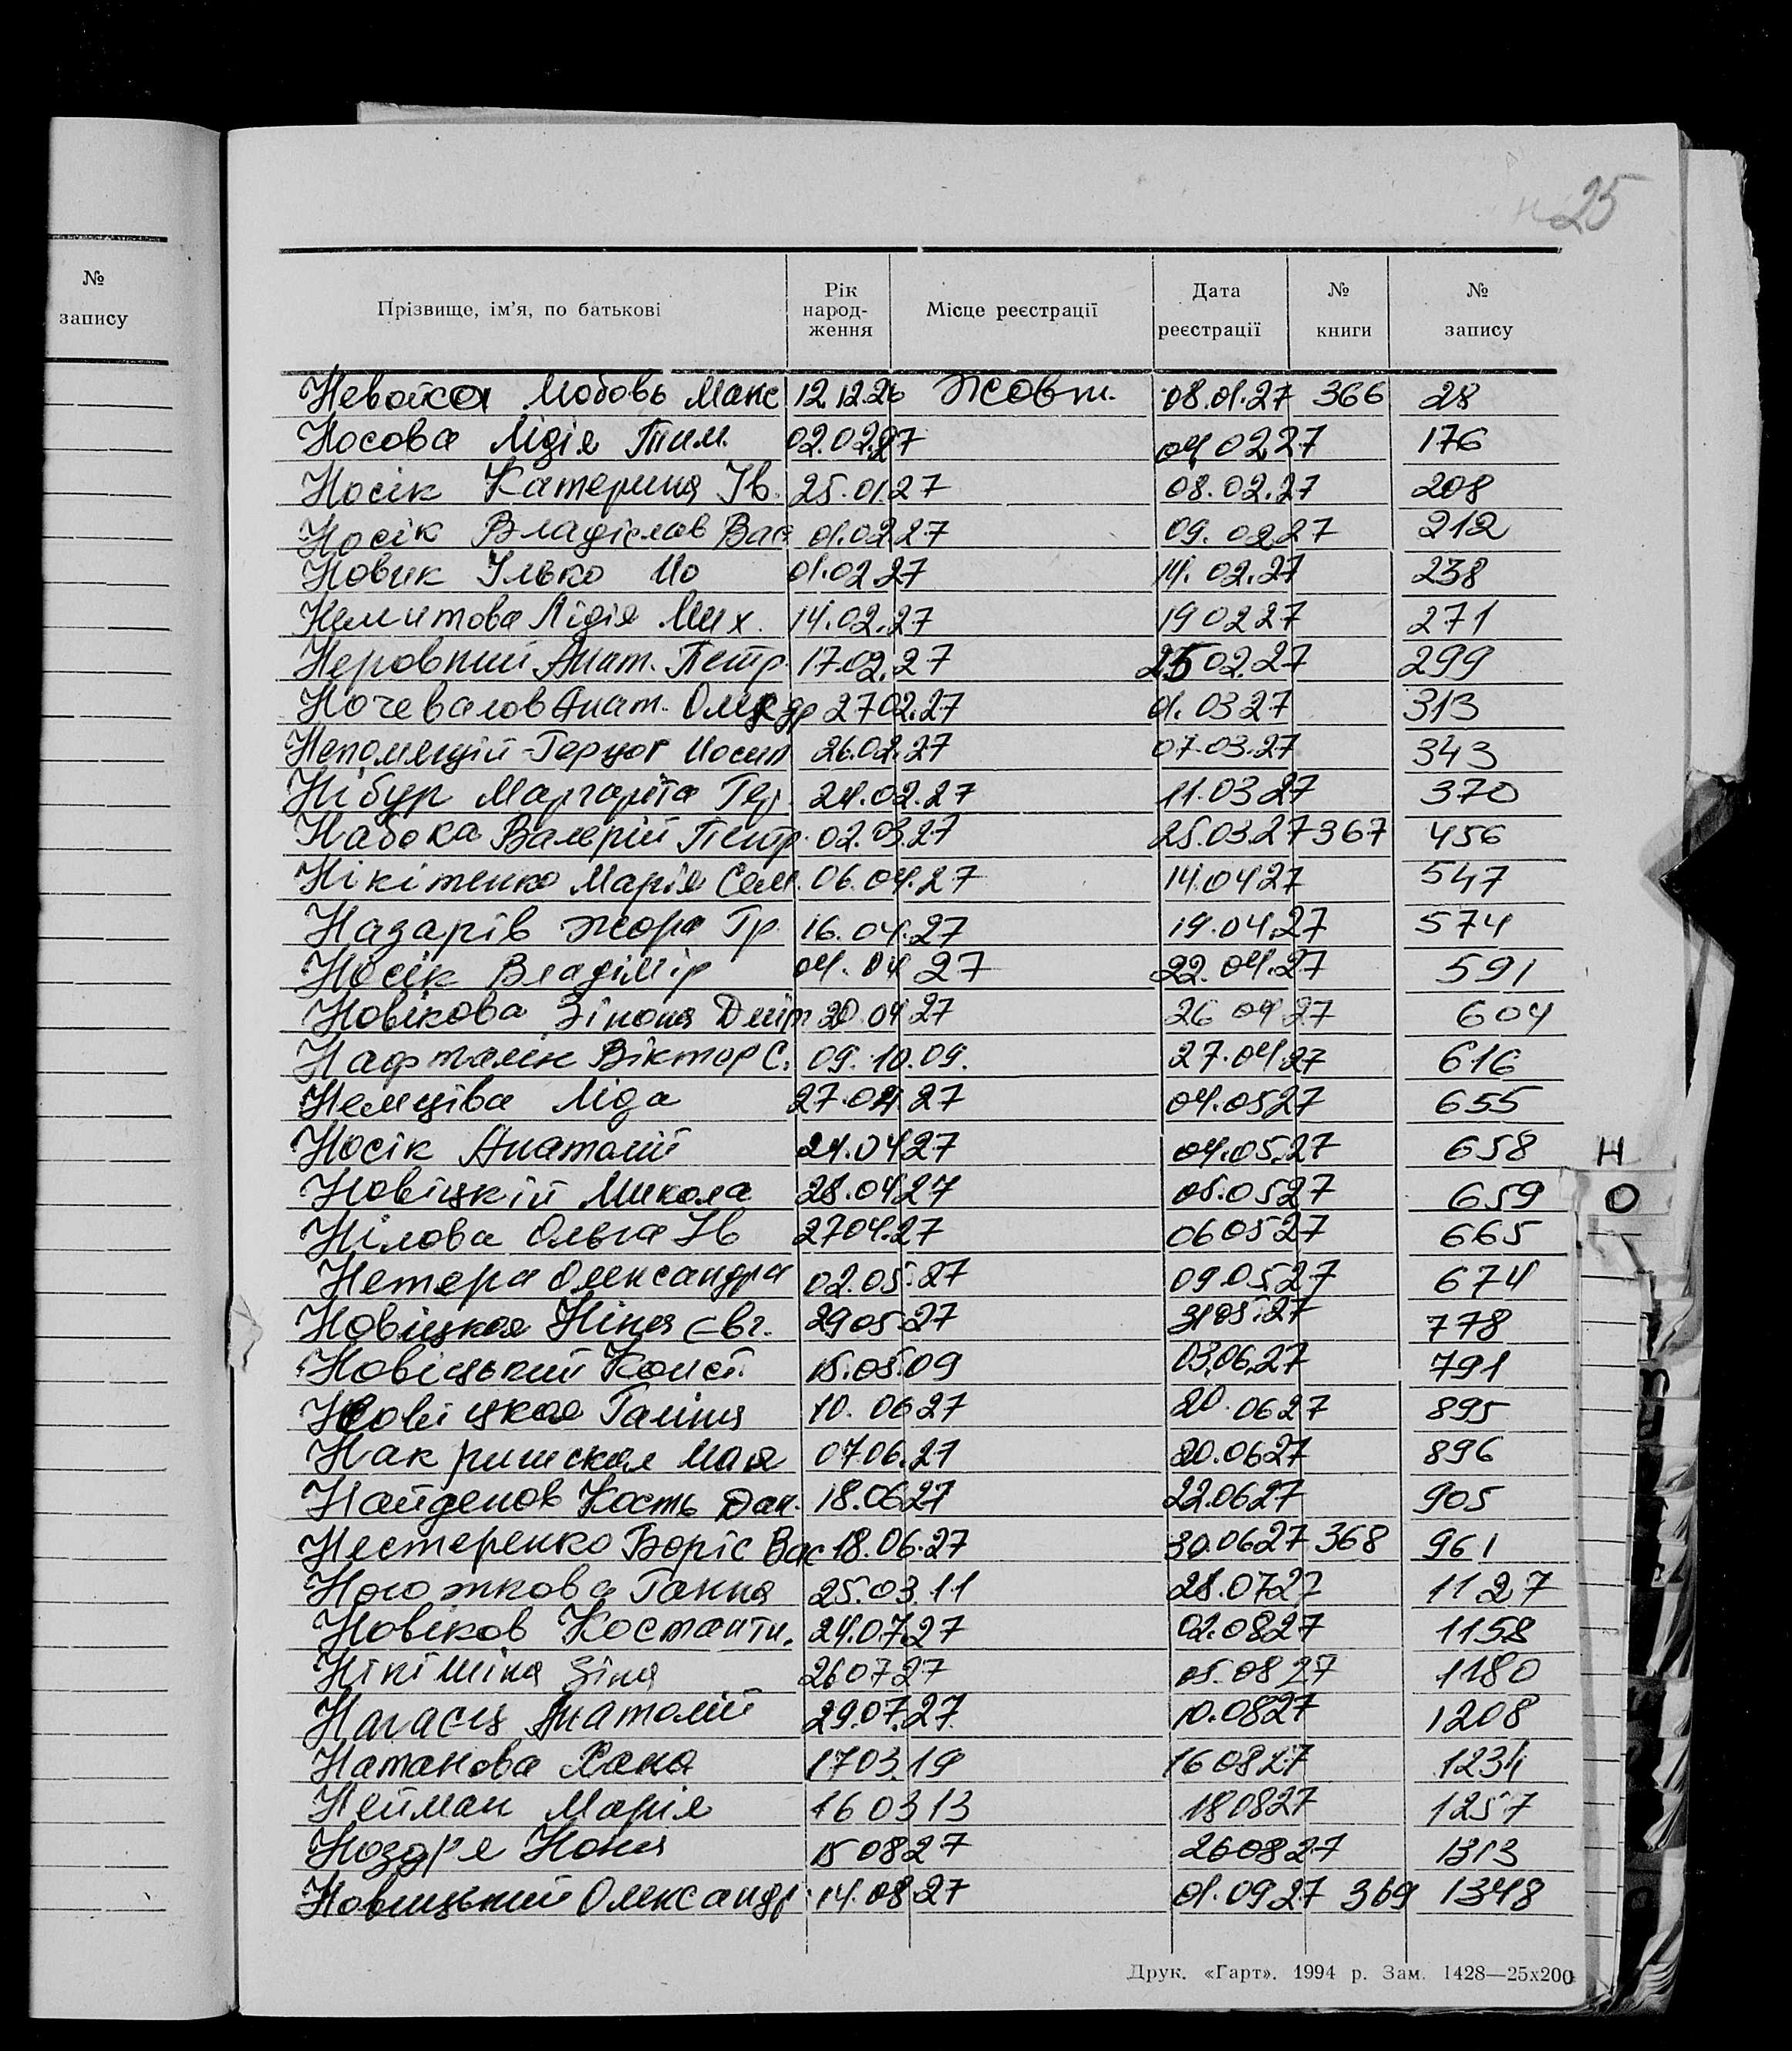 н 25
№
запису
Прізвище, ім'я, по батькові Рік народ-ження Місце реєстрації Дата реєстрації № книги № запису
Любовь Макс 12.12.26 Жовт. 08.01.27 366 28
Носова Лідія Тим. 02.02.27 04 02 27 176
Носік Катерина Ів. 25.01.27 08.02.27 208
Носік Владіслав Вас 01.02 27 09.02 27 212
Новик Ілько Йо 01.02.27 14.02.27 238
Немитова Лідія Мих. 14.02.27 19 02 27 271
Неровний Анат. Петр. 17.02.27 25 02.27 299
Ночевалов Анат. Олкдр 27 02.27 01.03 27 313
Непомящій-Герцог Иосип 26.02.27 07.03.27 343
Нібур Маргаріта Гер. 24.02.27 11.03 27 370
Набока Валерій Петр. 02.03.27 25.03.27 367 456
Нікітенко Марія Сем. 06.04.27 14.04 27 547
Назарів Жора Гр. 16.04.27 19.04.27 574
Носік Владімір 04.04 27 22.04.27 591
Новікова Зінона Дмитр 20.04 27 26 04 27 604
Нафталін Віктор С. 09.10.09. 27.04.27 616
Немціва Ліда 27.04.27 04.05 27 655
Носік Анатолій 24.04 27 04.05.27 658
Новіцкій Микола 28.04 27 05.05 27 659
Нілова Ольга Ів 27 04.27 06 05 27 665
Нетера Олександра 02.05.27 09.05.27 674
Новіцкая Ніна Євг. 29 05.27 31 05.27 778
Новіцький Конст. 15.05.09 03.06.27 791
Новіцкая Галіна 10.06 27 20.06 27 895
Накришская Мая 07 06.27 20.06 27 896
Найденов Кость Дан. 18.06 27 22.06 27 905
Нестеренко Боріс Вас 18.06.27 30.06 27 368 961
Ноготкова Ганна 25.03.11 28.07 27 1127
Новіков Костанти. 24.07.27 02.08 27 1158
Нікішіна Зіна 26 07 27 05.08 27 1180
Анатолій 29.07.27. 10.08 27 1208
Натанова Хана 17 03.19 16 08 27 1234
Нейман Марія 16 03 13 18 08 27 1257
Ноздря Ноня 15 08 27 26 08 27 1313
Новицький Олександр 14.08 27 01.09 27 369 1348
Н
О
Друк. «Гарт». 1994 р. Зам. 1428—25х200